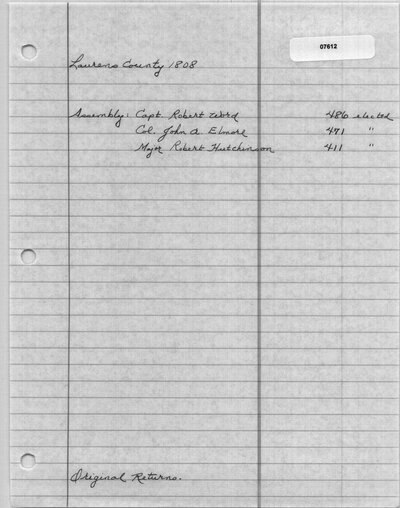 07612
Laurens County 1808
Assembly: Capt Robert Word 486 elected
Col. John A. Elmore 471 "
Major Robert Hutchinson 411 "
Original Returns.